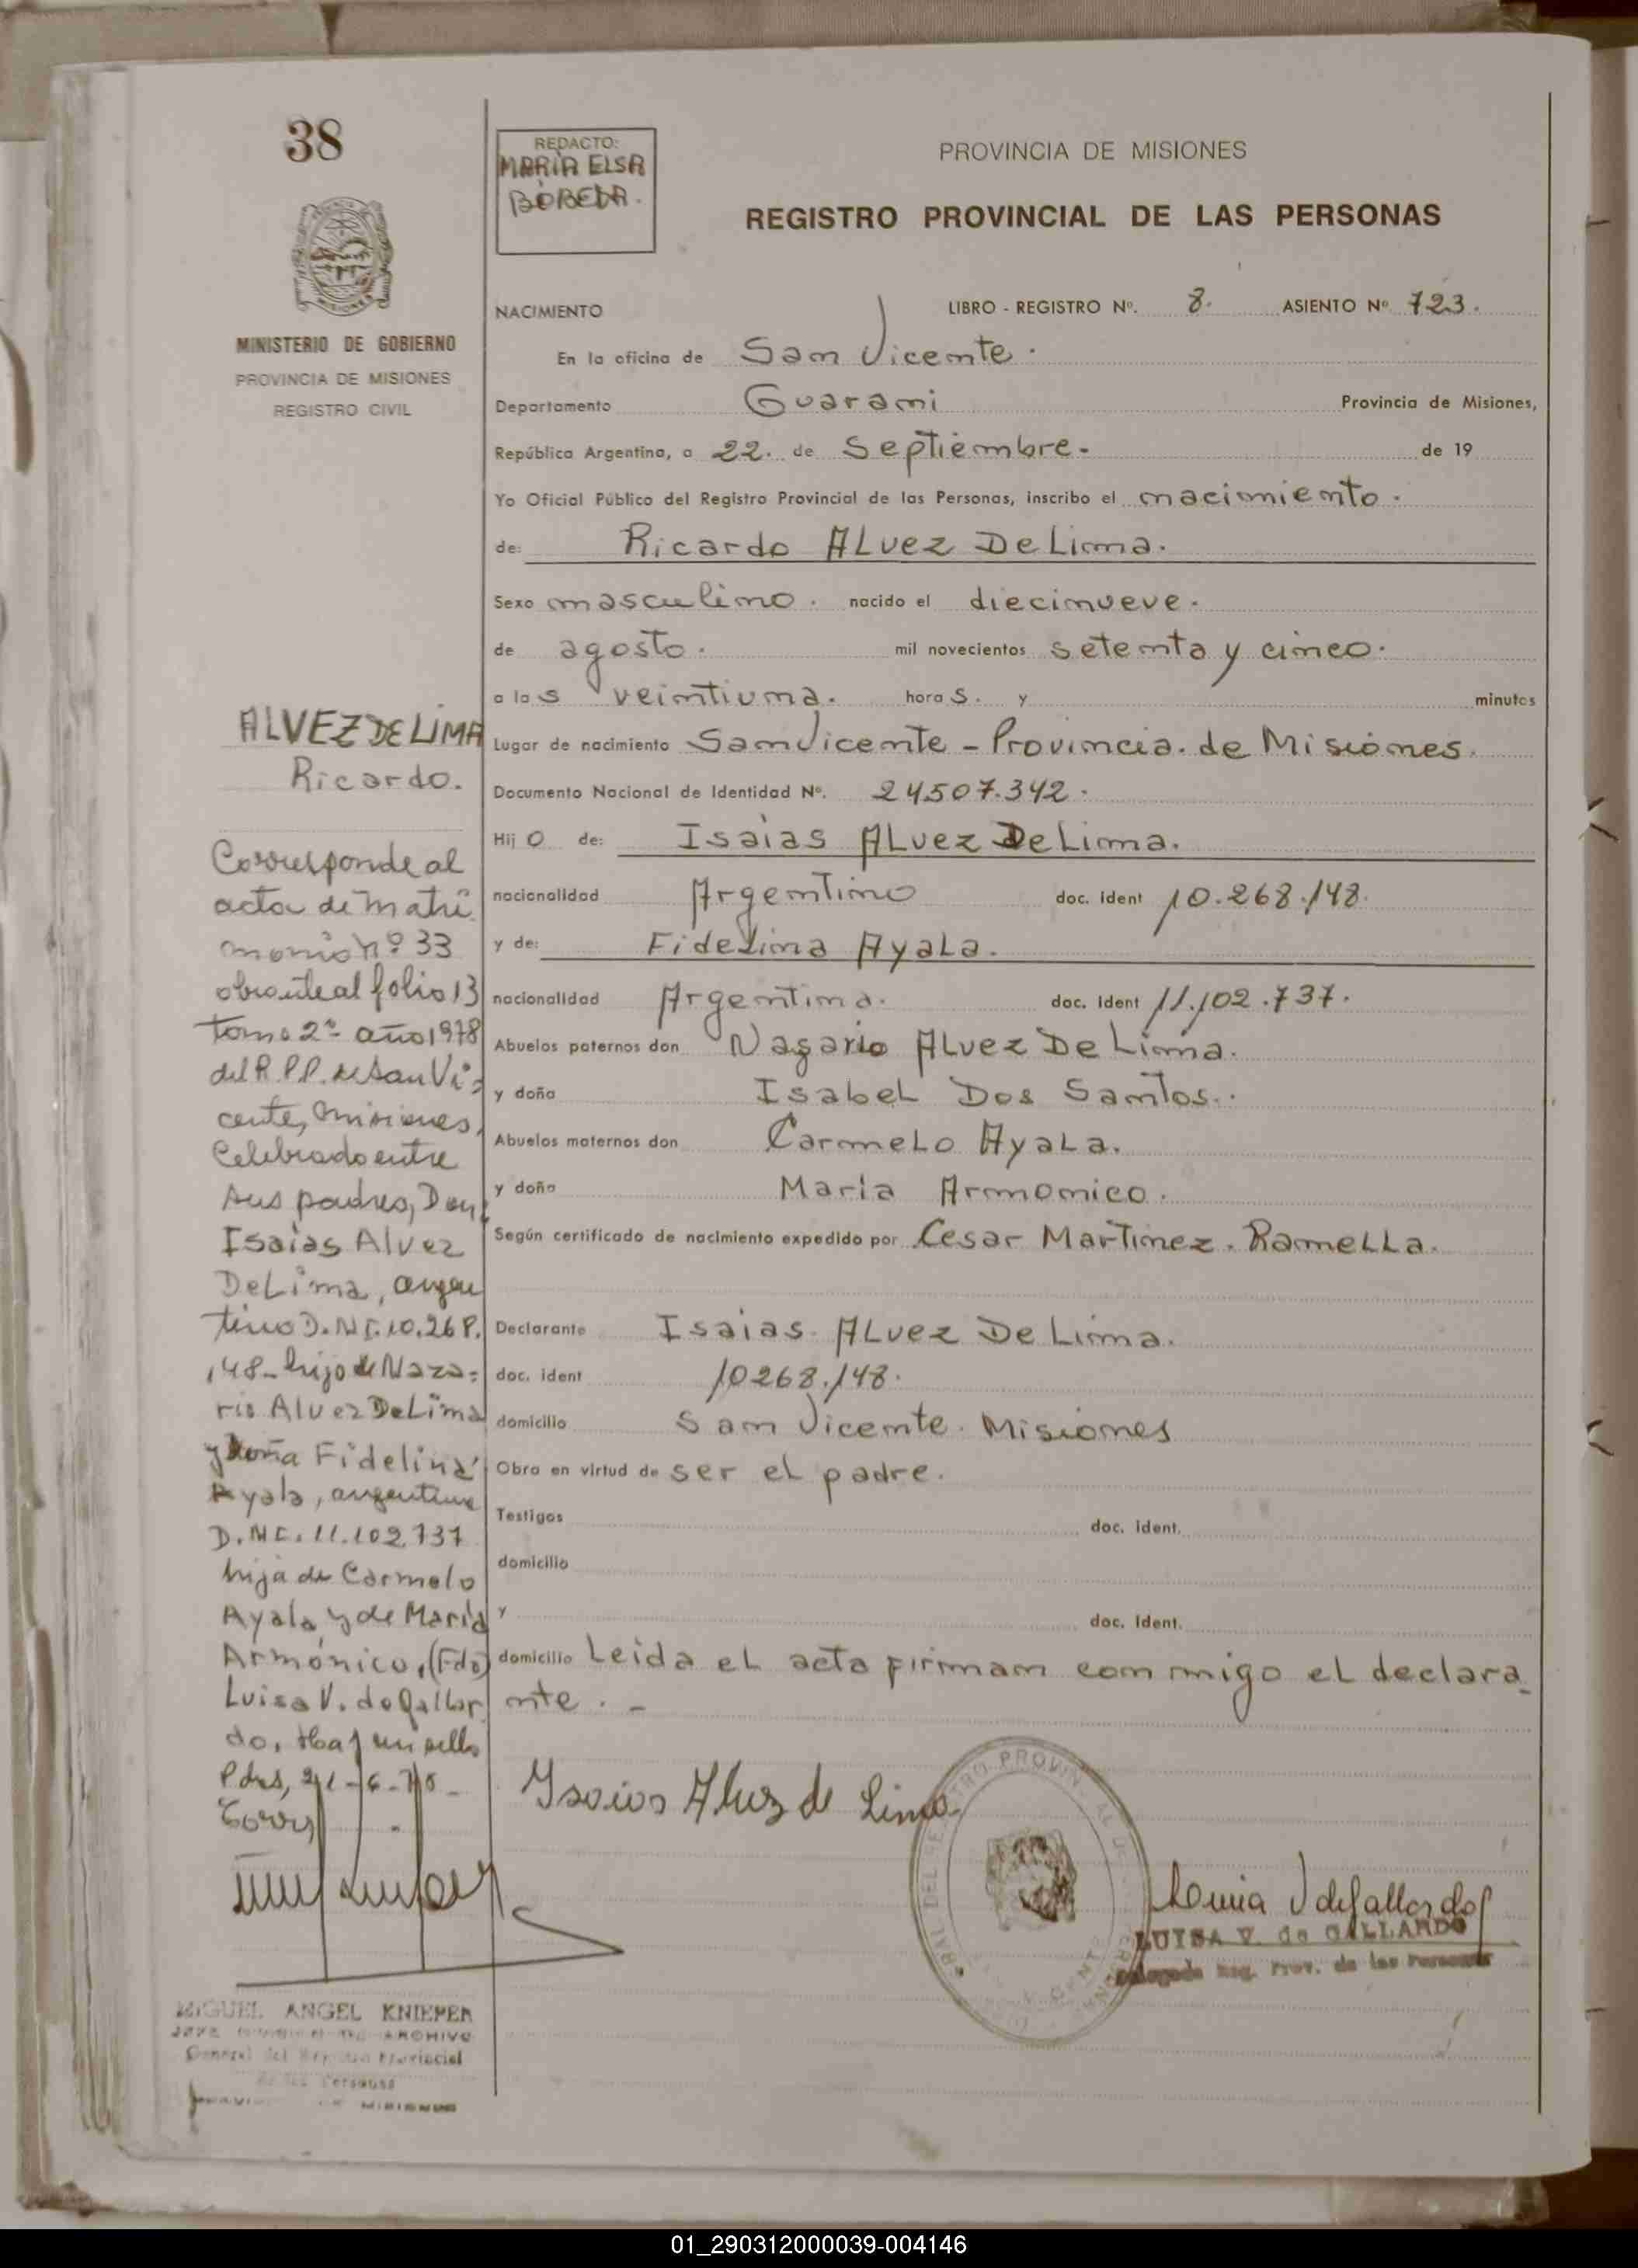 38
REDACTO:
MARÍA ELSA
BÓBEDA.
PROVINCIA DE MISIONES
REGISTRO PROVINCIAL DE LAS PERSONAS
MINISTERIO DE GOBIERNO
PROVINCIA DE MISIONES
REGISTRO CIVIL
NACIMIENTO LIBRO - REGISTRO Nº. 8. ASIENTO Nº 723.
En la oficina de San Vicente.
Departamento Guarani Provincia de Misiones,
República Argentina, a 22. de Septiembre. de 19
Yo Oficial Público del Registro Provincial de las Personas, inscribo el nacimiento.
de: Ricardo ALvez De Lima.
Sexo masculino. nacido el diecinueve.
de agosto. mil novecientos setenta y cinco.
a las veintiuna. horas. y minutos
Lugar de nacimiento San Vicente - Provincia. de Misiones.
Documento Nacional de Identidad Nº. 24507.342.
Hijo de: Isaías ALvez De Lima.
nacionalidad Argentino doc. ident 10.268.148.
y de: Fidelina Ayala.
nacionalidad Argentina. doc. ident 11.102.737.
Abuelos paternos don Nazario ALvez De Lima.
y doña IsabeL Dos Santos.
Abuelos maternos don CarmeLo AyaLa.
y doña Maria Armonico.
Según certificado de nacimiento expedido por Cesar Martinez. RameLLa.
Declarante Isaias ALvez De Lima.
doc. ident 10268.148.
domicilio San Vicente. Misiones
Obra en virtud de ser eL padre.
Testigos doc. ident.
domicilio
y doc. ident.
domicilio Leida eL acta firman con migo el declara
nte. -
ALVEZ DE LIMA
Ricardo.
Corresponde al
acta de matri
monio nº 33
obrante al folio 13
tomo 2º año 1978
del R.P.P. de San Vi=
cente, Misiones,
Celebrado entre
sus padres, Don
Isaías Alvez
De Lima, argen
tino D.N.I. 10.268.
148- hijo de Naza=
rio Alvez De Lima
y doña Fidelina
Ayala, argentina
D.N.I. 11.102.737
hija de Carmelo
Ayala y de María
Armónico, (Fdo)
Luisa V. de Gallar
do, Hay un sello
Pdas, 21-6-78-
Isaias Alvez de Lima
Luisa V de Gallardo
LUISA V. de GALLARDO
Delegada Reg. Prov. de las Personas
MIGUEL ANGEL KNIEPER
ARCHIVO
General del Registro Provincial
de las Personas
MISIONES
01_290312000039-004146